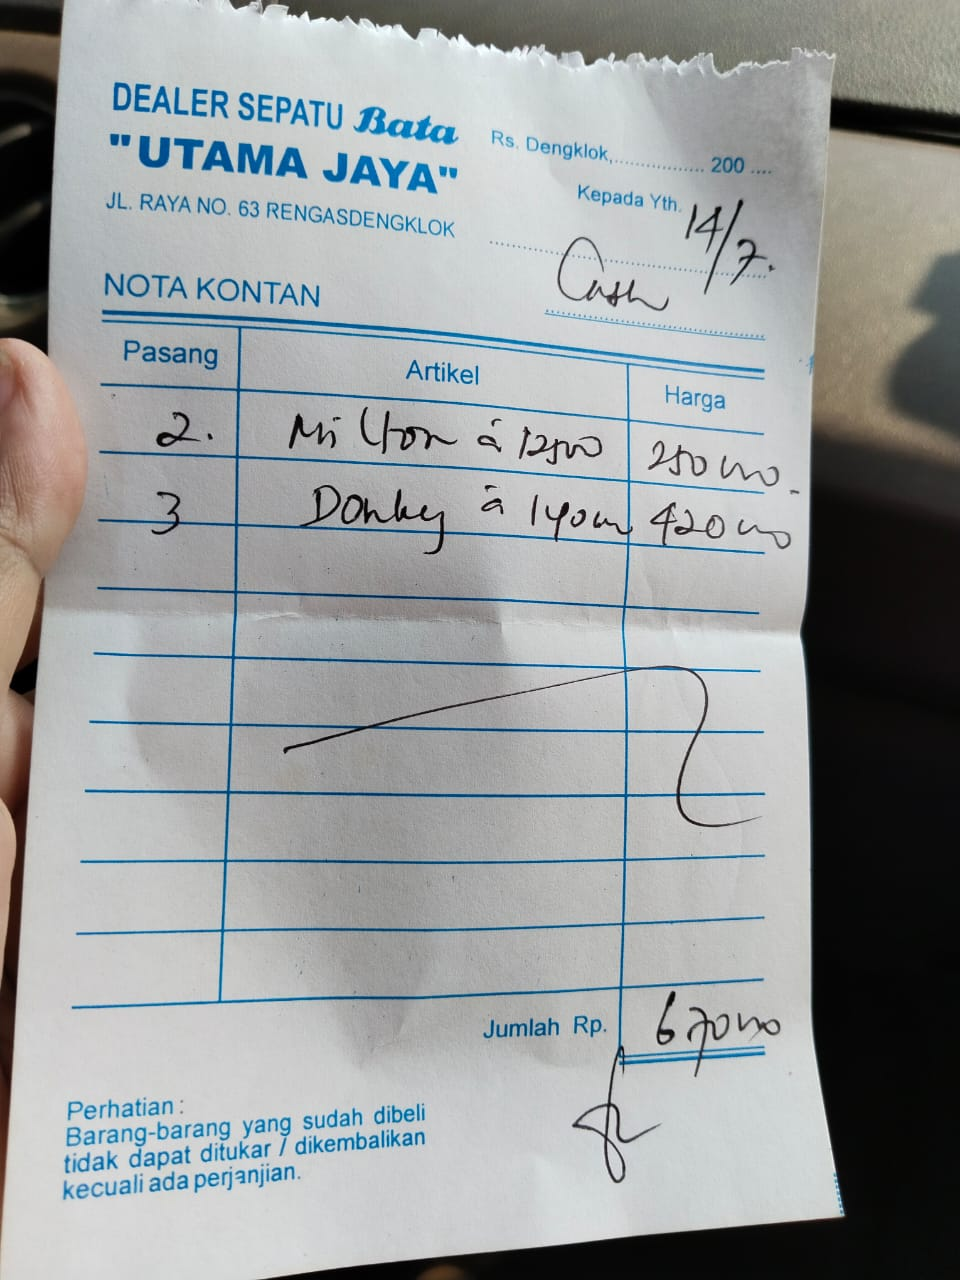 DEALER SEPATU Bata
"UTAMA JAYA"
JL. RAYA NO. 63 RENGASDENGKLOK
Rs. Dengklok,................. 200 ....
Kepada Yth.
14/7.
Cash
NOTA KONTAN
Pasang Artikel Harga
2. Milton à 125000 250000.-
3 Donkey à 140000 420000
Jumlah Rp. 670000
Perhatian :
Barang-barang yang sudah dibeli
tidak dapat ditukar / dikembalikan
kecuali ada perjanjian.